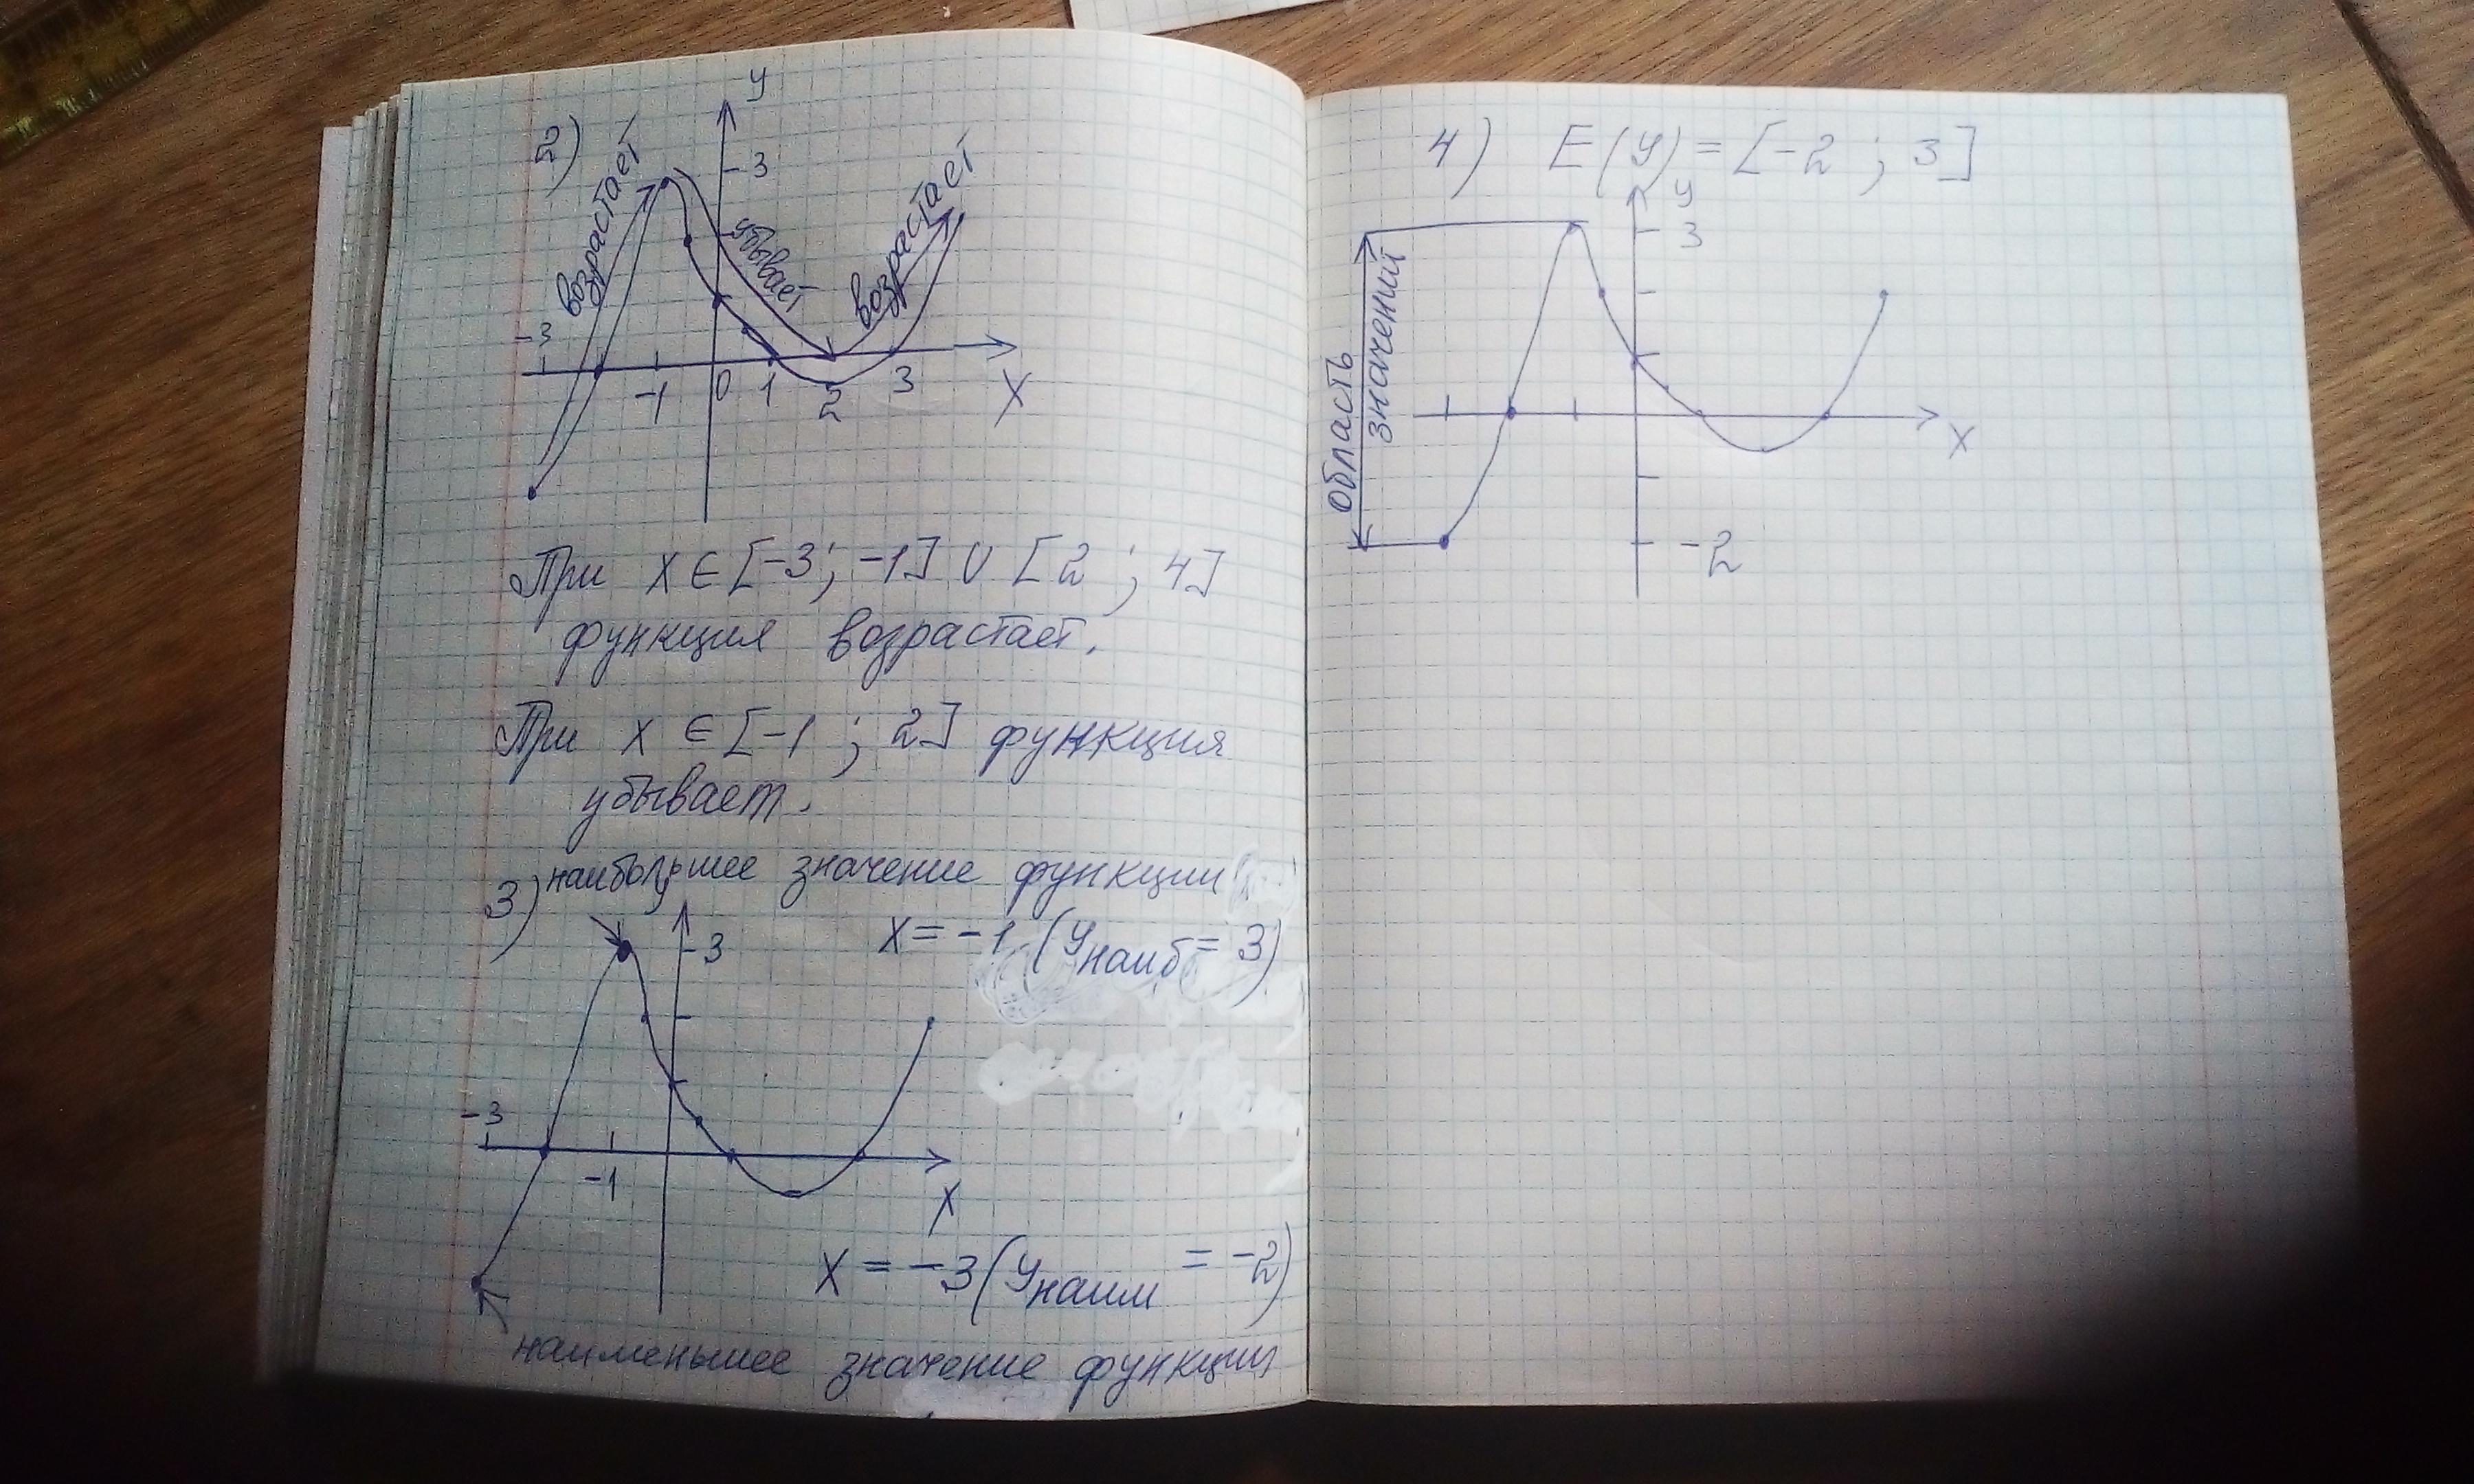 2)
y
3
возрастает
убывает
возрастает
-3
-1
0
1
2
3
X
При x ∈ [-3; -1] ∪ [2 ; 4]
функция возрастает.
При x ∈ [-1 ; 2] функция
убывает.
3) наибольшее значение функции
3
X = -1 (yнаиб = 3)
-3
-1
X
X = -3 (yнаим = -2)
наименьшее значение функции
4) E(y) = [-2 ; 3]
y
3
область
значений
X
-2